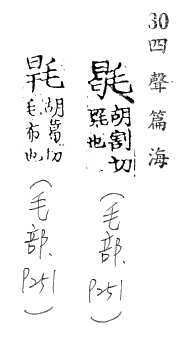 30四聲篇海
胡割切
也
(毛部.P251)
胡葛切
毛布也
(毛部.P251)